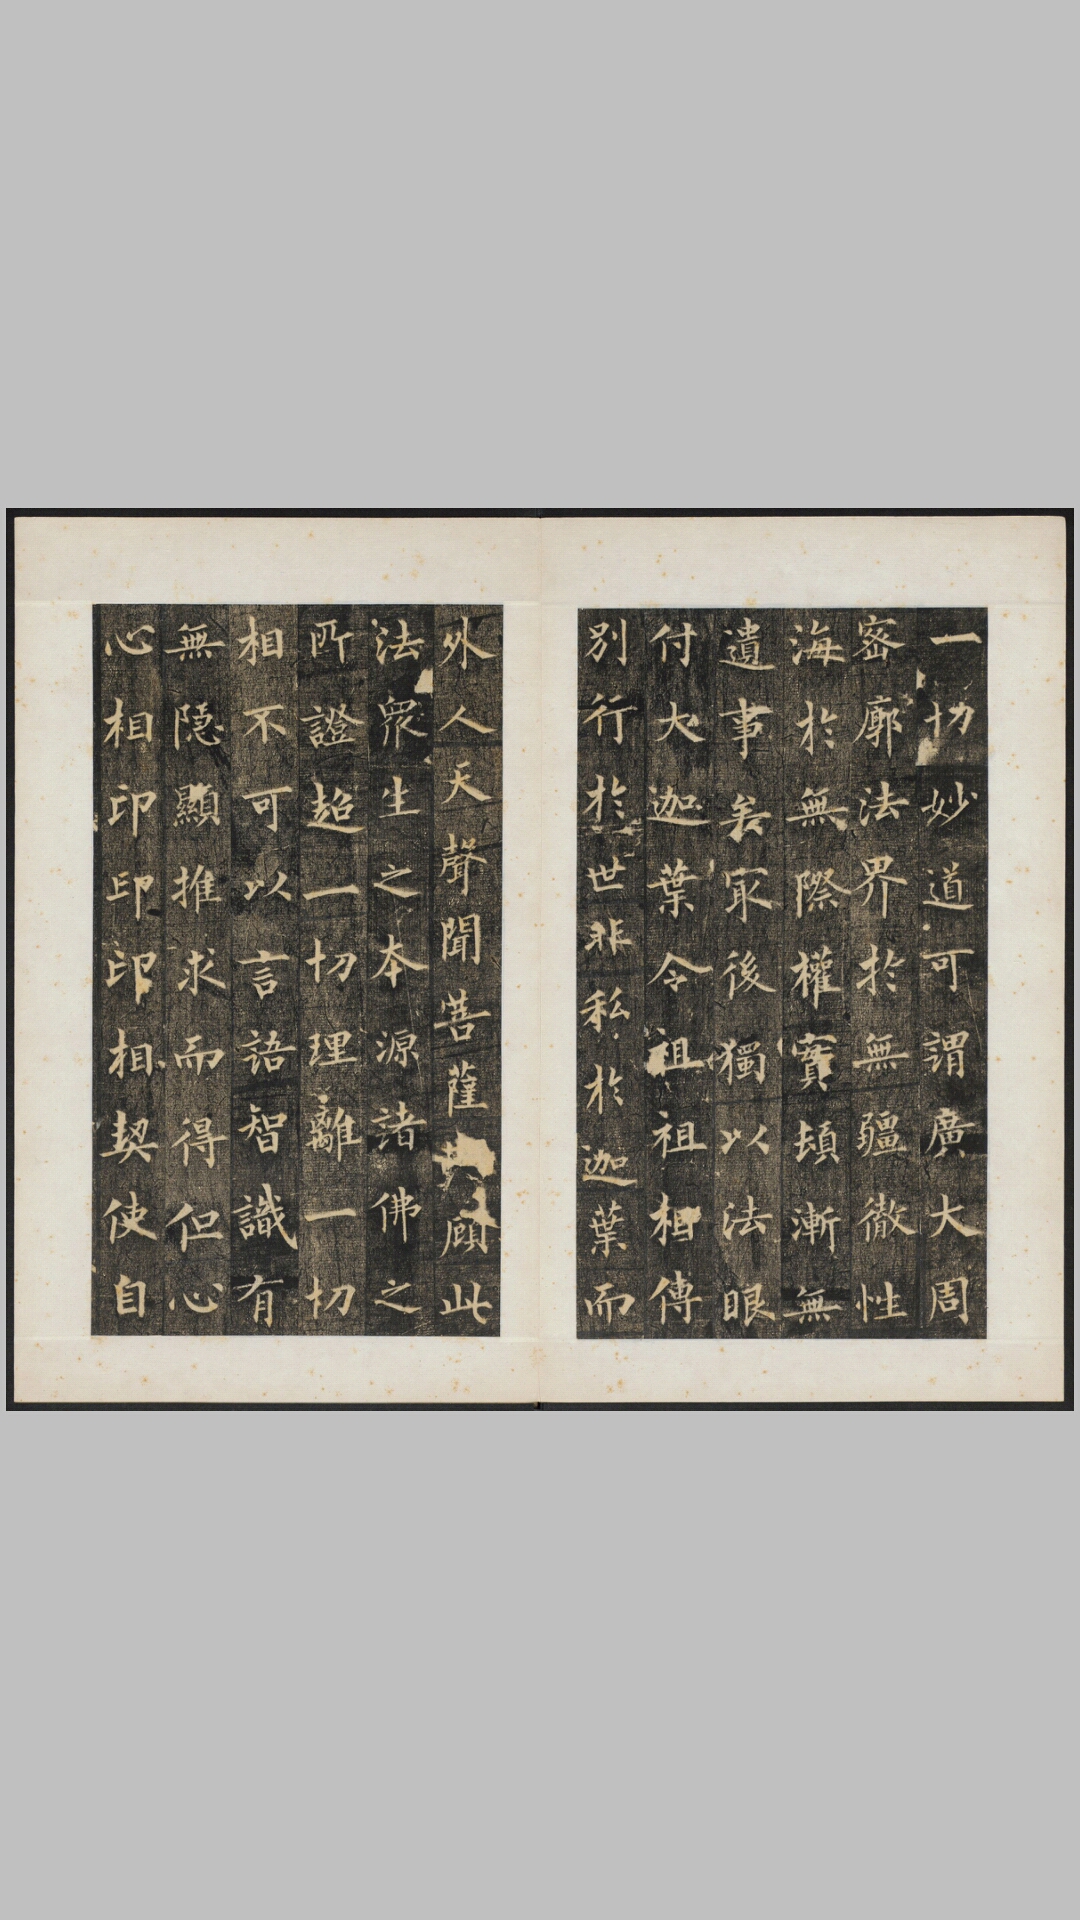 一切妙道可謂廣大周
密廓法界於無疆徹性
海於無際權實頓漸無
遺事矣冣後獨以法眼
付大迦葉令祖祖相傳
別行於世非私於迦葉而
外人天聲聞菩薩顧此
法衆生之本源諸佛之
所證超一切理離一切
相不可以言語智識有
無隱顯推求而得但心
心相印印印相契使自